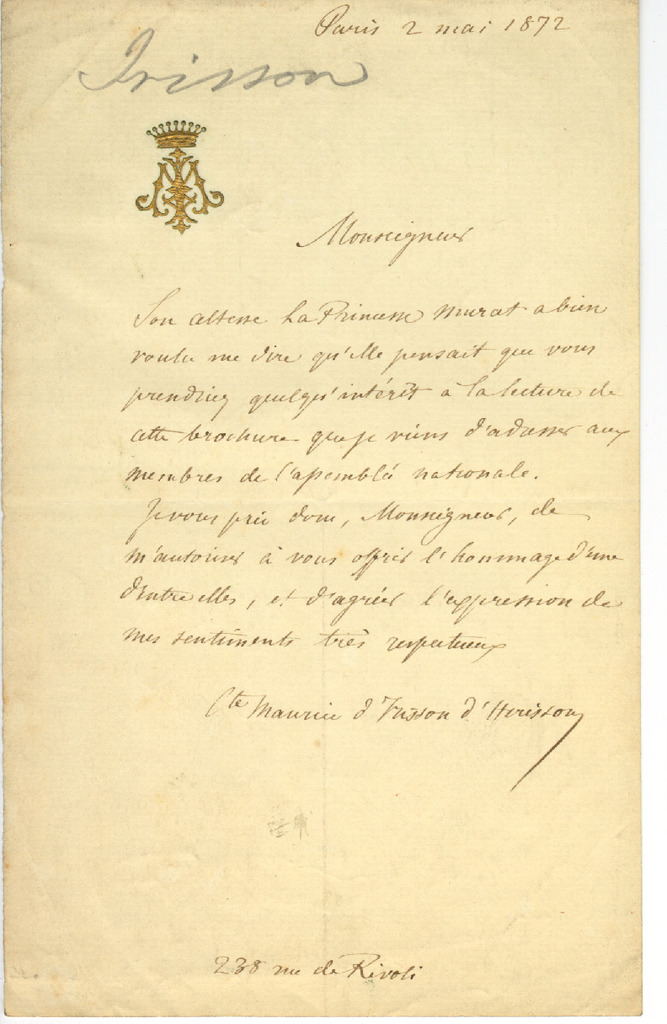 Paris 2 mai 1872
Irisson
Monseigneur
Son altesse La Princesse Murat a bien
voulu me dire qu'elle pensait que vous
prendriez quelqu'intérêt à la lecture de
cette brochure que je viens d'adresser aux
membres de l'assemblée nationale.
Je vous prie donc, Monseigneur, de
m'autoriser à vous offrir l'hommage d'une
d'entre elles, et d'agréer l'expression de
mes sentiments très respectueux
Cte Maurice d'Irisson d'Hérisson
238 rue de Rivoli